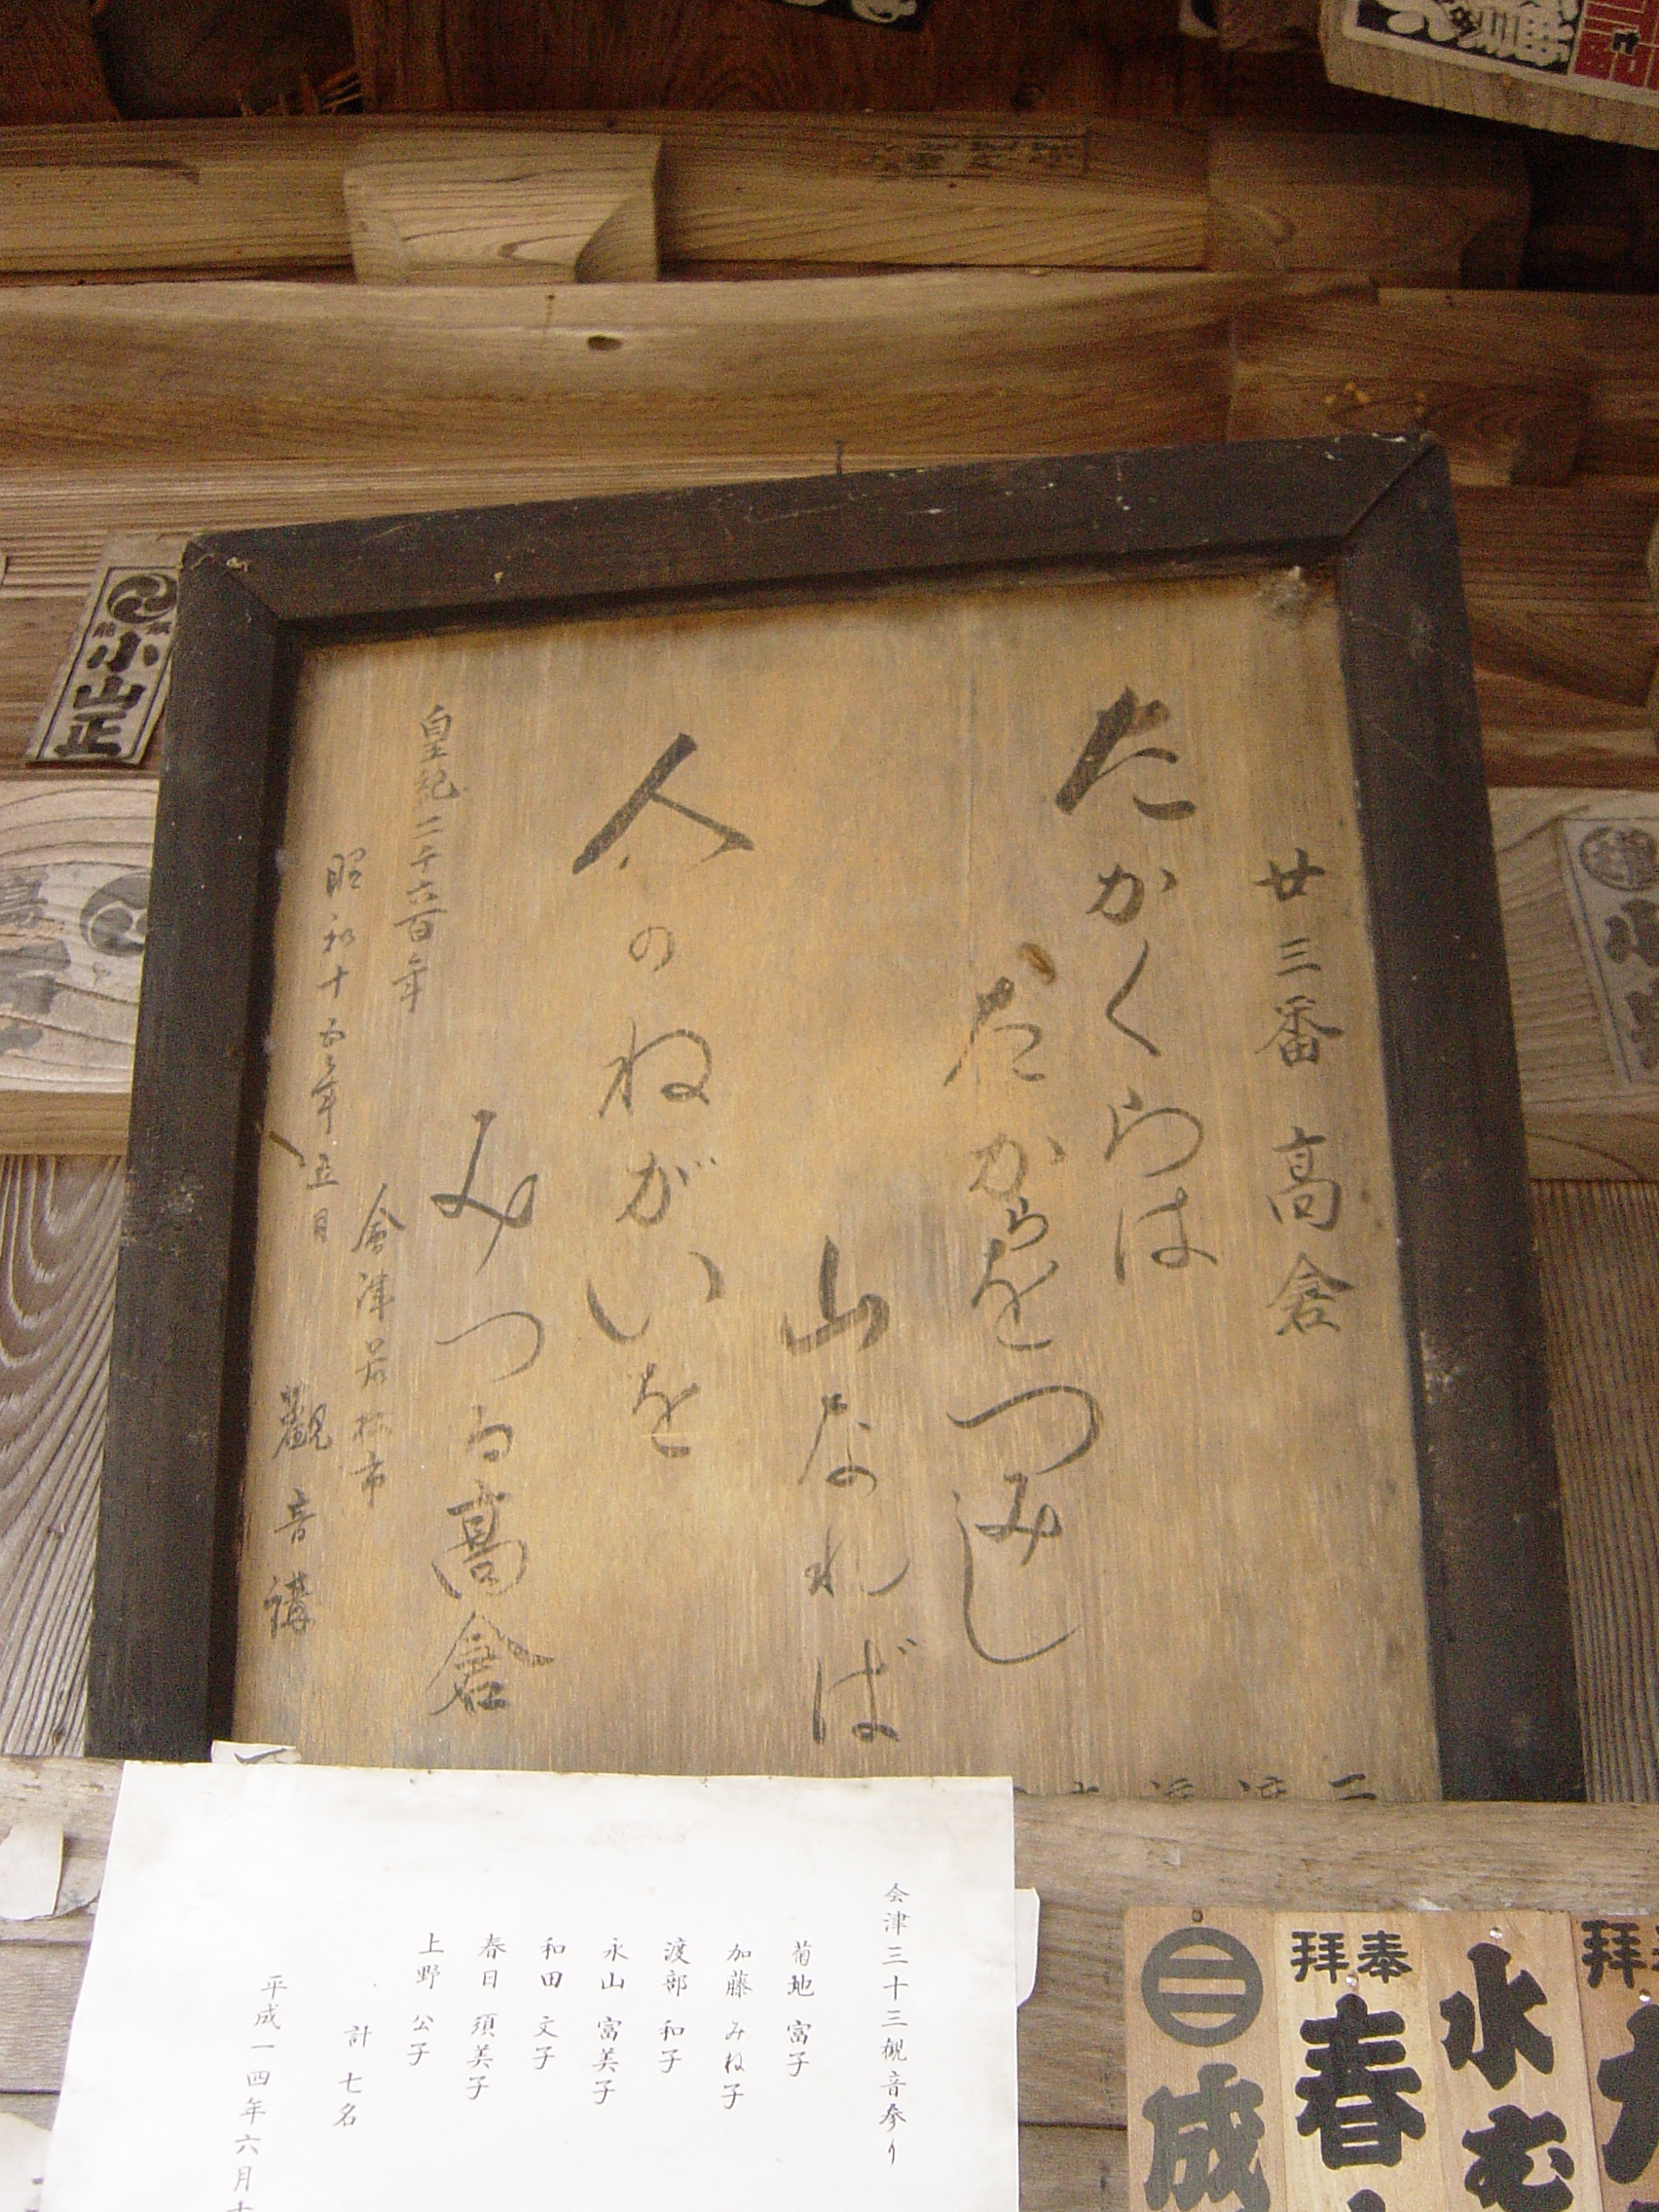 廿三番 高倉
たかくらは
たからをつみし
山なれば
人のねがいを
みつる高倉
皇紀二千六百年
昭和十五年五月
會津若松市
觀音講
会津三十三観音参り
菊地 富子
加藤 みね子
渡部 和子
永山 富美子
和田 文子
春日 須美子
上野 公子
計 七名
平成一四年六月十
小山正
成
奉拝
春
水む